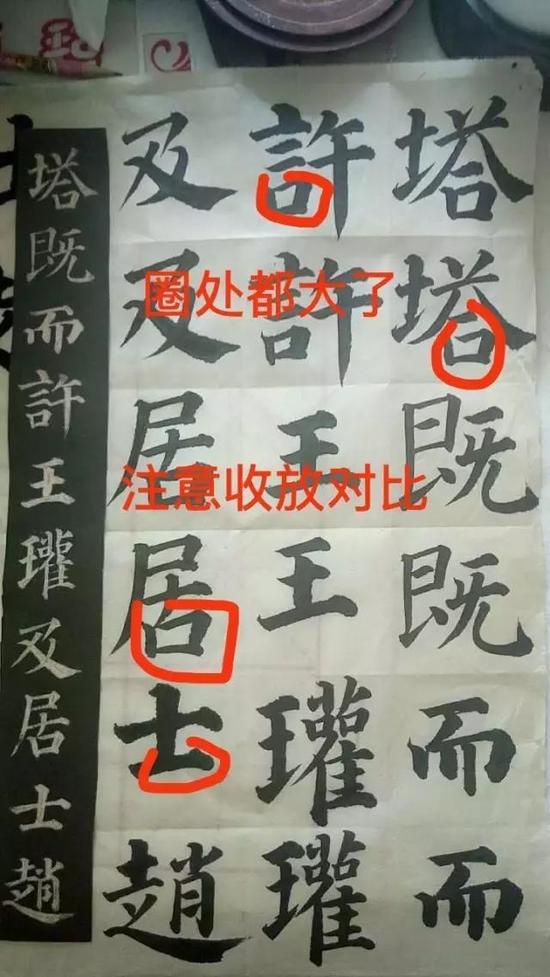 塔塔既既而而
許許王王瓘瓘
及及居居士趙
塔既而許王瓘及居士趙
圈处都大了
注意收放对比